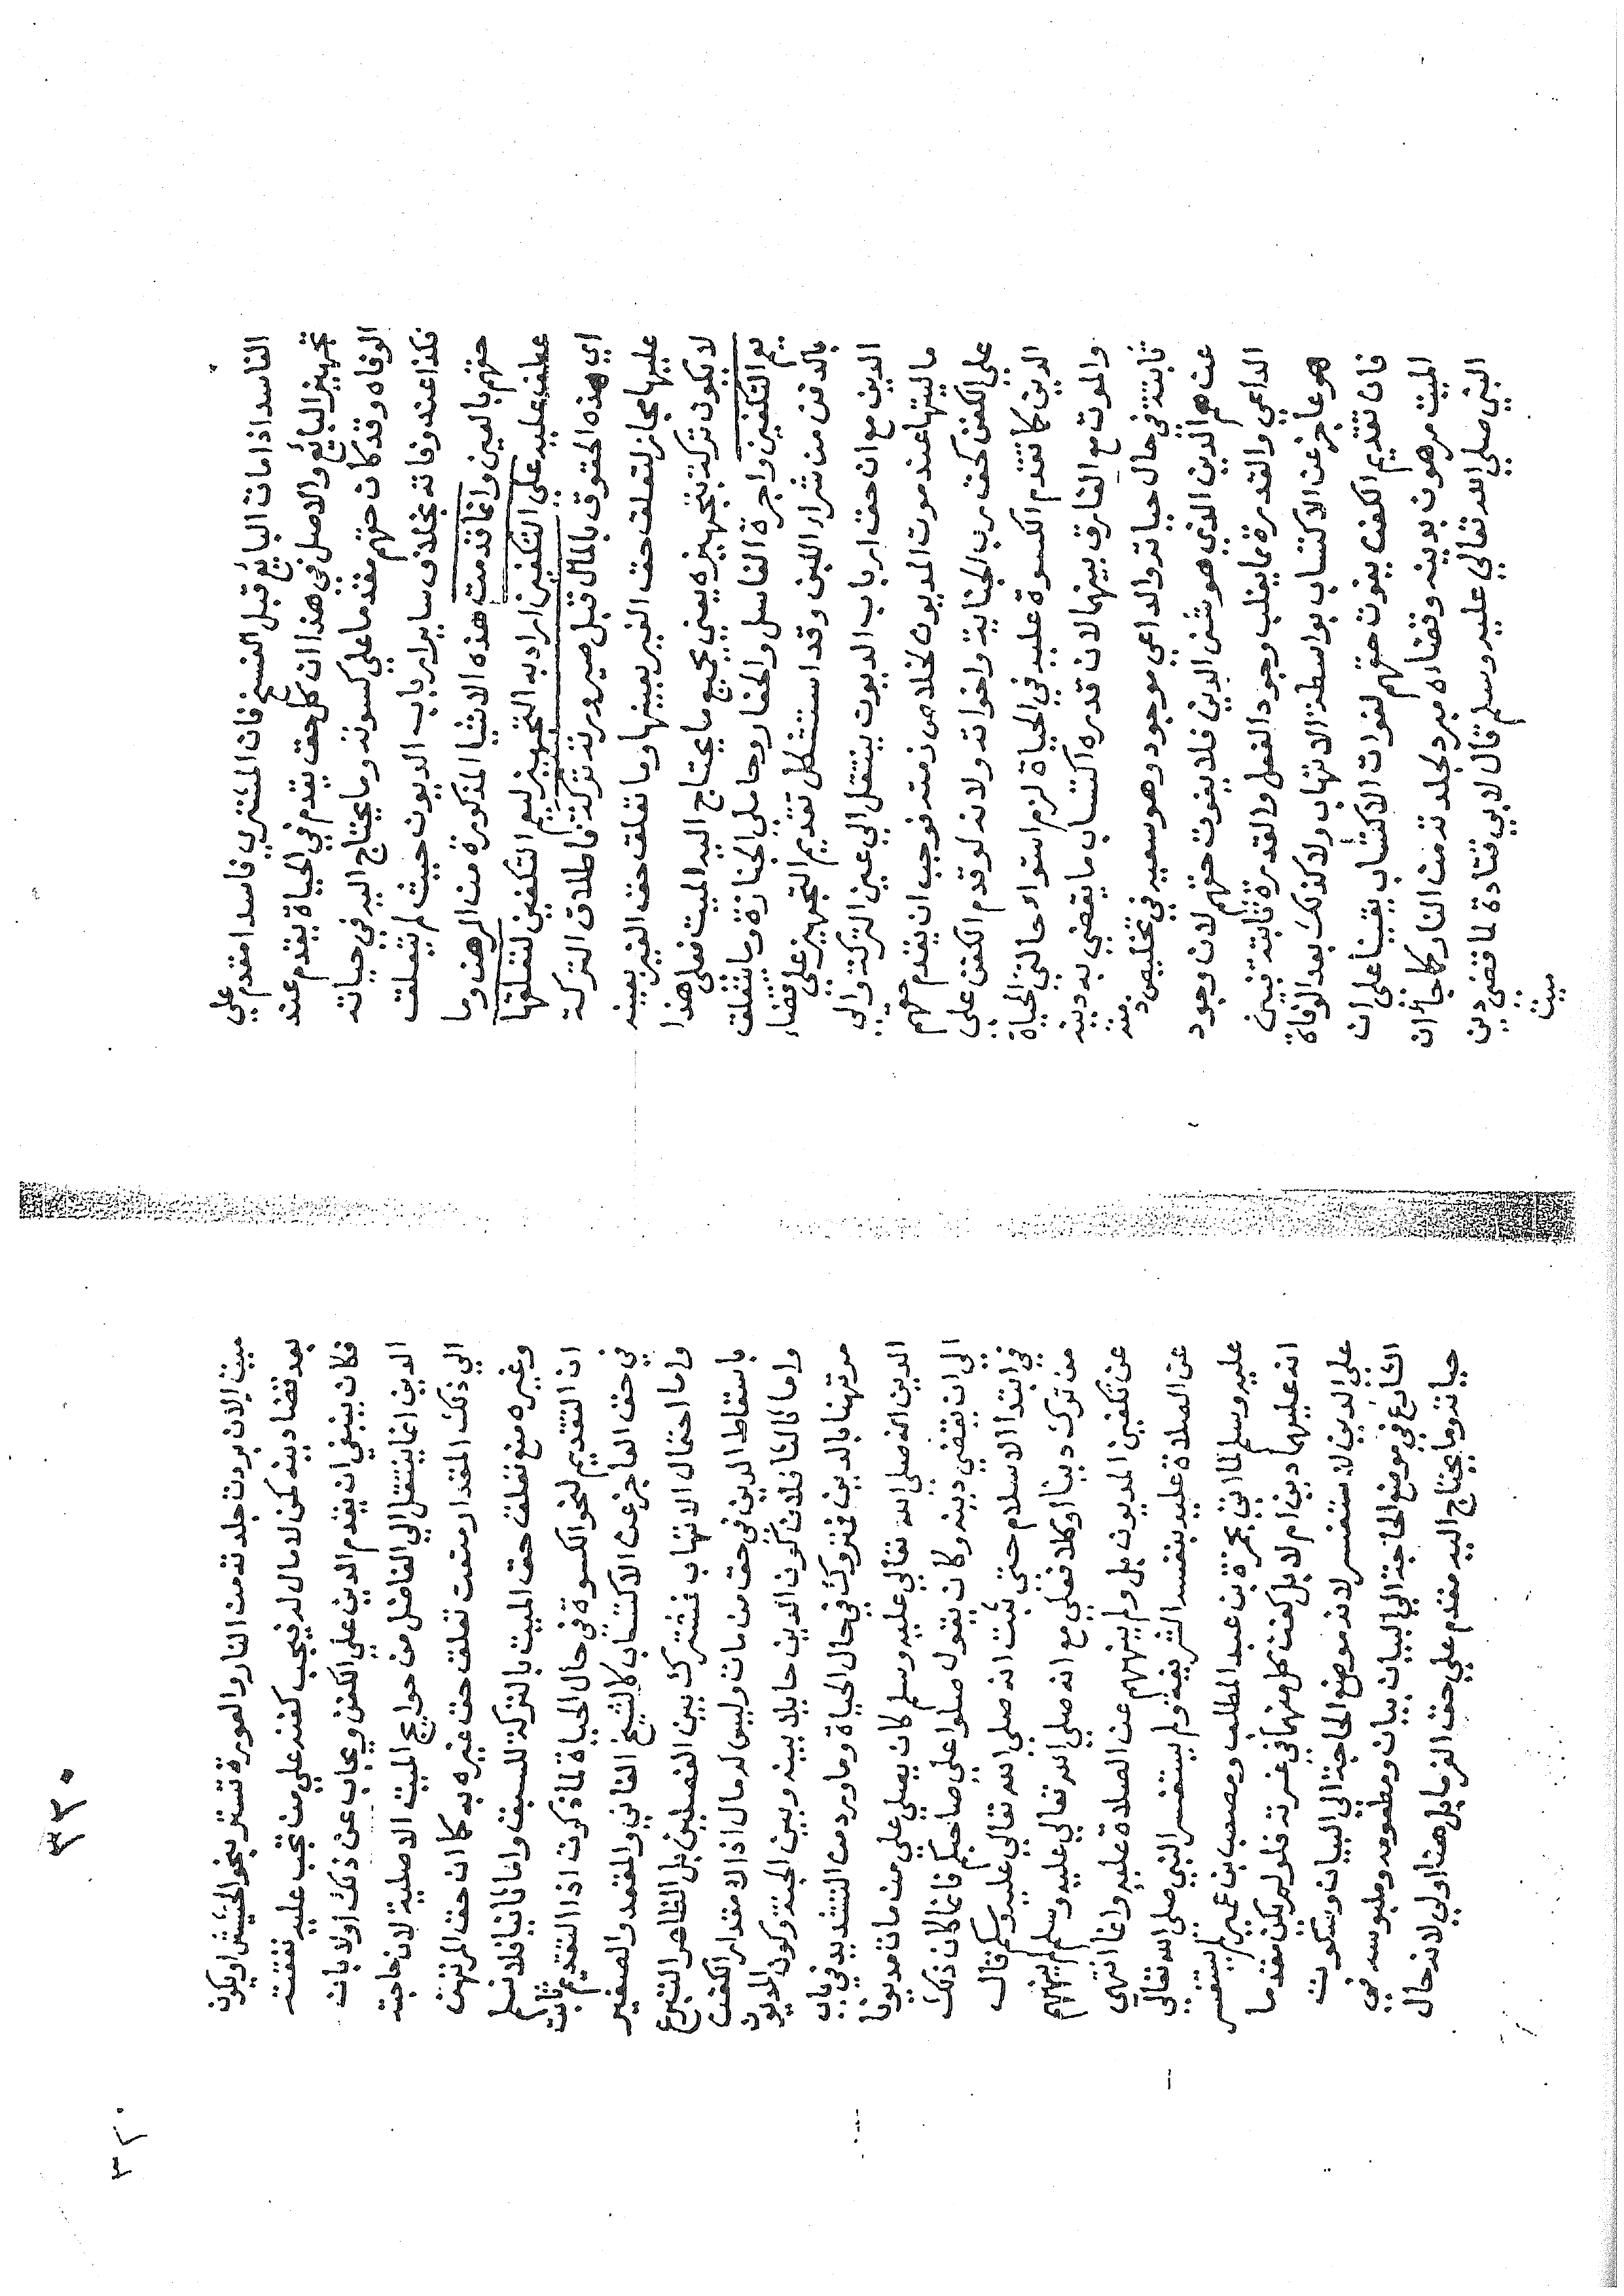 الفاسد اذا مات البايع قبل الفسخ فان المشتري فاسدا مقدم علي
تجهيز البائع والاصل في هذا ان كل حق يقدم في الحياة يقدم عند
الوفاه وقد كان حقهم مقدما علي كسوته وما يحتاج اليه في حياته
فكذا عند وفاته بخلاف ساير ارباب الديون حيث لم يتعلق
حقهم بالعين وانما قدمت هذه الاشيا المذكورة من الرهن وما
عطف عليه علي التكفين اراد به التجهيز ليعم التكفين لتعلقها
اي هذه الحقوق بالمال قبل صيرورته تركة فاطلاق التركة
عليها مجاز لتعلق حق الغير بعينها وما تعلق حق الغير بعينه
لا يكون تركة بتجهيزه يعني بجميع ما يحتاج اليه الميت فعلي هذا
يعم التكفين واجرة الغاسل والحفار وحاملي الجنازة وما يتعلق
بالدفن من شراء اللبن وقد استشكل تقديم التجهيز علي قضاء
الدين مع ان حق ارباب الديون ينتقل الي عين التركة والي
ماليتها عند موت المديون لخلاص ذمته فوجب ان يقدم حقهم
علي الكفن كحق رب الجناية واخواته ولانه لو قدم الكفن علي
الدين كما تقدم الكسوة عليه في الحياة لزم استواء حالتي الحياة
والموت مع الفارق بينهما لان قدرة اكتساب ما يقضي به دينه
ثابتة في حال حياته والداعي موجود وهو سعيه في تخليص ذمته
عن هم الدين الذي هو شين الدين فلا يفوت حقهم لان وجود
الداعي والقدرة مما يغلب وجود الفعل والقدرة ثابتة
هو عاجز عن الاكتساب بواسطة الاتهاب ولا كذلك بعد الوفاة
فان تقديم الكفن يفوت حقهم لفوات الاكتساب يقينا علي ان
الميت مرهون بدينه وقضاه مبرد لجلدته من النار كما جاء ان
النبي صلي الله تعالي عليه وسلم قال لابي قتادة لما قضي دين
ميت
٣٣٠
٣٢٠
ميت الان بردت جلدته من النار والعورة تستر بنحو الحشيش او يكون
بعد قضا دينه كمن لا مال له فيجب كفنه علي من تجب عليه نفقته
فكان ينبغي ان يقدم الدين علي الكفن ويجاب عن ذلك اولا بان
الدين انما ينتقل الي الفاضل من حوايج الميت الاصلية لان حاجته
الي ذلك المقدار منعت تعلق حق غيره به كما ان حق المرتهن
وغيره منع تعلق حق الميت بالتركة للسبق واما ثانيا فلا نسلم
ان التقديم لنحو الكسوة في حال الحياة لما ذكرت اذ التقديم ثابت
في حق العاجز عن الاكتساب كالشيخ الفاني والمقعد والصغير
واما احتمال الاتهاب فمشترك بين الفصلين بل الظاهر التبرع
باسقاط الدين في حق من مات وليس له مال اذ الا مقدار الكفن
واما ثالثا فلان كون الدين حايلا بينه وبين الجنة وكون المديون
مرتهنا بالدين فمتروك في حال الحياة وما ورد من التشديد في باب
الدين انه صلي الله تعالي عليه وسلم كان يصلي علي من مات مديونا
الي ان يقضي دينه وكان يقول صلوا علي صاحبكم فانما كان ذلك
في ابتدا الاسلام حتي ثبت انه صلي الله تعالي عليه وسلم قال
من ترك دينا او كلا فعلي مع انه صلي الله تعالي عليه وسلم لم ينههم
عن تكفين المديون بل ولم ينههم عن الصلاة عليه وانما انتهي
عن الصلاة عليه بنفسه الشريفة ولم يستفسر النبي صلي الله تعالي
عليه وسلم لما اتي بحمزة بن عبد المطلب ومصعب بن عمير لم يستفسر
انه عليهما دين ام لا بل كفن كل منهما في نمرته فلو لم يكن مقدما
علي الدين لاستفسر لانه موضع الحاجة الي البيان وسكوت
الشارع في موضع الحاجة الي البيان بيان ومطعومه وملبوسه في
حياته وما يحتاج اليه مقدم علي حق الغرما بل هنا اولي لانه حال